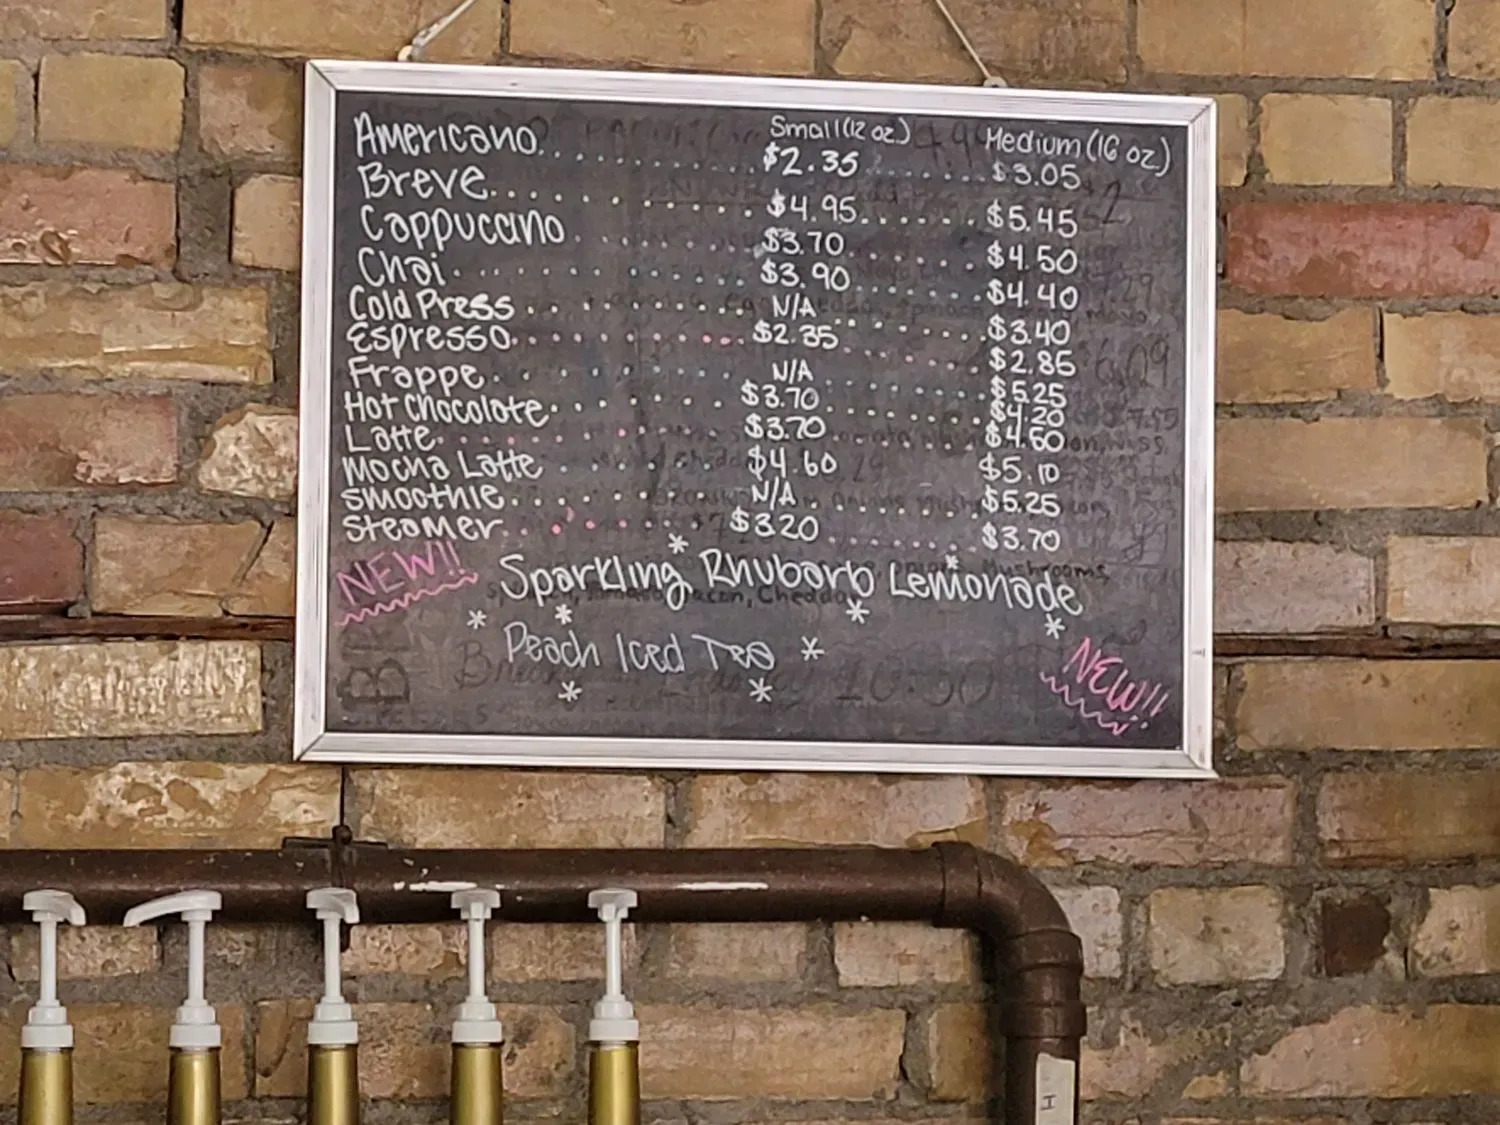 Small (12 oz.) Medium (16 oz)
Americano $2.35 $3.05
Breve $4.95 $5.45
Cappuccino $3.70 $4.50
Chai $3.90 $4.40
Cold Press N/A $3.40
Espresso $2.35 $2.85
Frappe N/A $5.25
Hot Chocolate $3.70 $4.20
Latte $3.70 $4.50
Mocha Latte $4.60 $5.10
Smoothie N/A $5.25
Steamer $3.20 $3.70
NEW!! Sparkling Rhubarb Lemonade
Peach Iced Tea
NEW!!